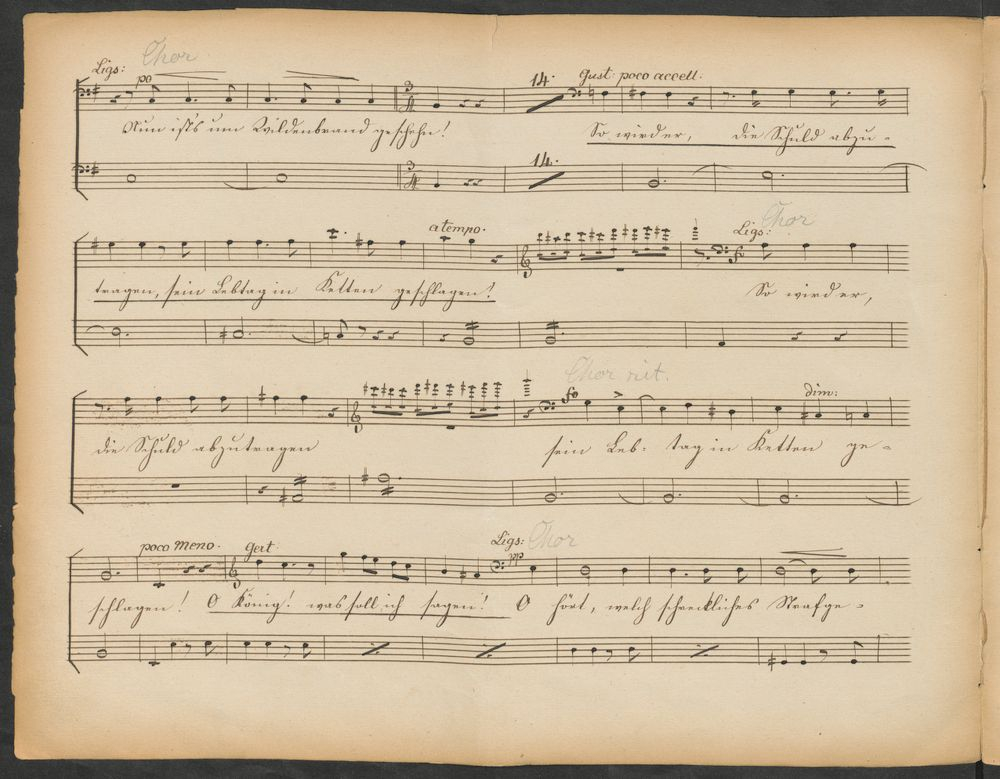 Ligs: Chor
po
14. Gust: poco accell:
Nun ist's um Wildenbrand geschehn! So wird er, die Schuld abzu-
14.
a tempo. Ligs: Chor
fo
tragen, sein Lebtag in Ketten geschlagen! So wird er,
Chor rit.
fo dim:
die Schuld abzutragen sein Leb: tag in Ketten ge-
poco meno. Gert Ligs: Chor
pp
schlagen! O König! was soll ich sagen! O hört, welch schreckliches Strafge-